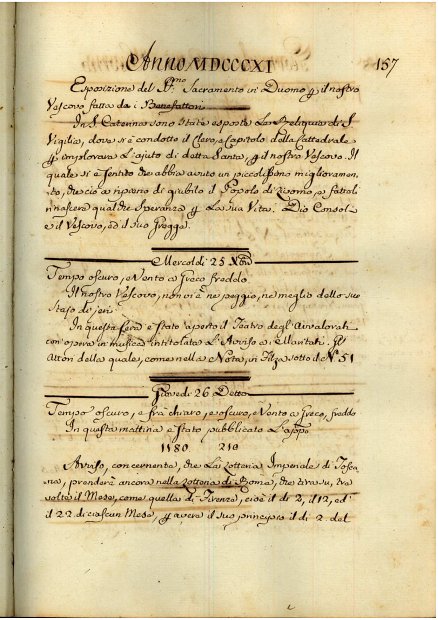 Anno MDCCCXI 157
Esposizione del SS.mo Sacramento in Duomo p il nostro
Vescovo fatta da i Benefattori
In S. Caterina sono state esposte le Reliquie di S.
Vigilia, dove si è condotto il Clero, e Capitolo della Cattedrale
p implorare l'ajuto di detta Santa, p il nostro Vescovo. Il
quale si è sentito che abbia avuto un piccolissimo miglioramen,
to, che ciò a ripieno di giubilo il Popolo di Livorno, e fattoli
rinascere qualche Speranza p la sua Vita. Dio Consoli
e il Vescovo, ed il suo Gregge.
Mercoldi 25 Nov.
Tempo oscuro, e Vento a Greco freddo.
Il nostro Vescovo, non vi è ne peggio, ne meglio dello suo
Stato di jeri
In questa sera è stato aperto il Teatro degl'Avvalorati
con opera in musica intitolata L'Avviso a i Maritati. Gl'
Attori della quale, come nella Nota, in Filza sotto d N.° 51
Giovedi 26 Detto
Tempo oscuro, e frà chiaro, e oscuro, e Vento a Greco, freddo
In questa mattina è stato pubblicato L'app.
1180 210
Avviso, concernente, che La Lotteria Imperiale di Tosca,
na, prenderà ancora nella Lotteria di Roma, che tira su, tre
volte il Mese, come quella di Firenze, cioè il di 2, il 12, ed'
il 22. di ciascun Mese, p avere il suo principio il di 2. del